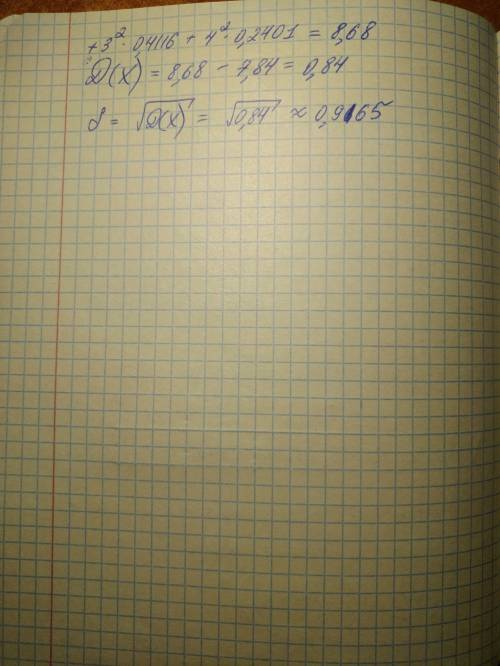 + 3² · 0,4116 + 4² · 0,2401 = 8,68
D(X) = 8,68 - 7,84 = 0,84
δ = √D(X) = √0,84 ≈ 0,9165